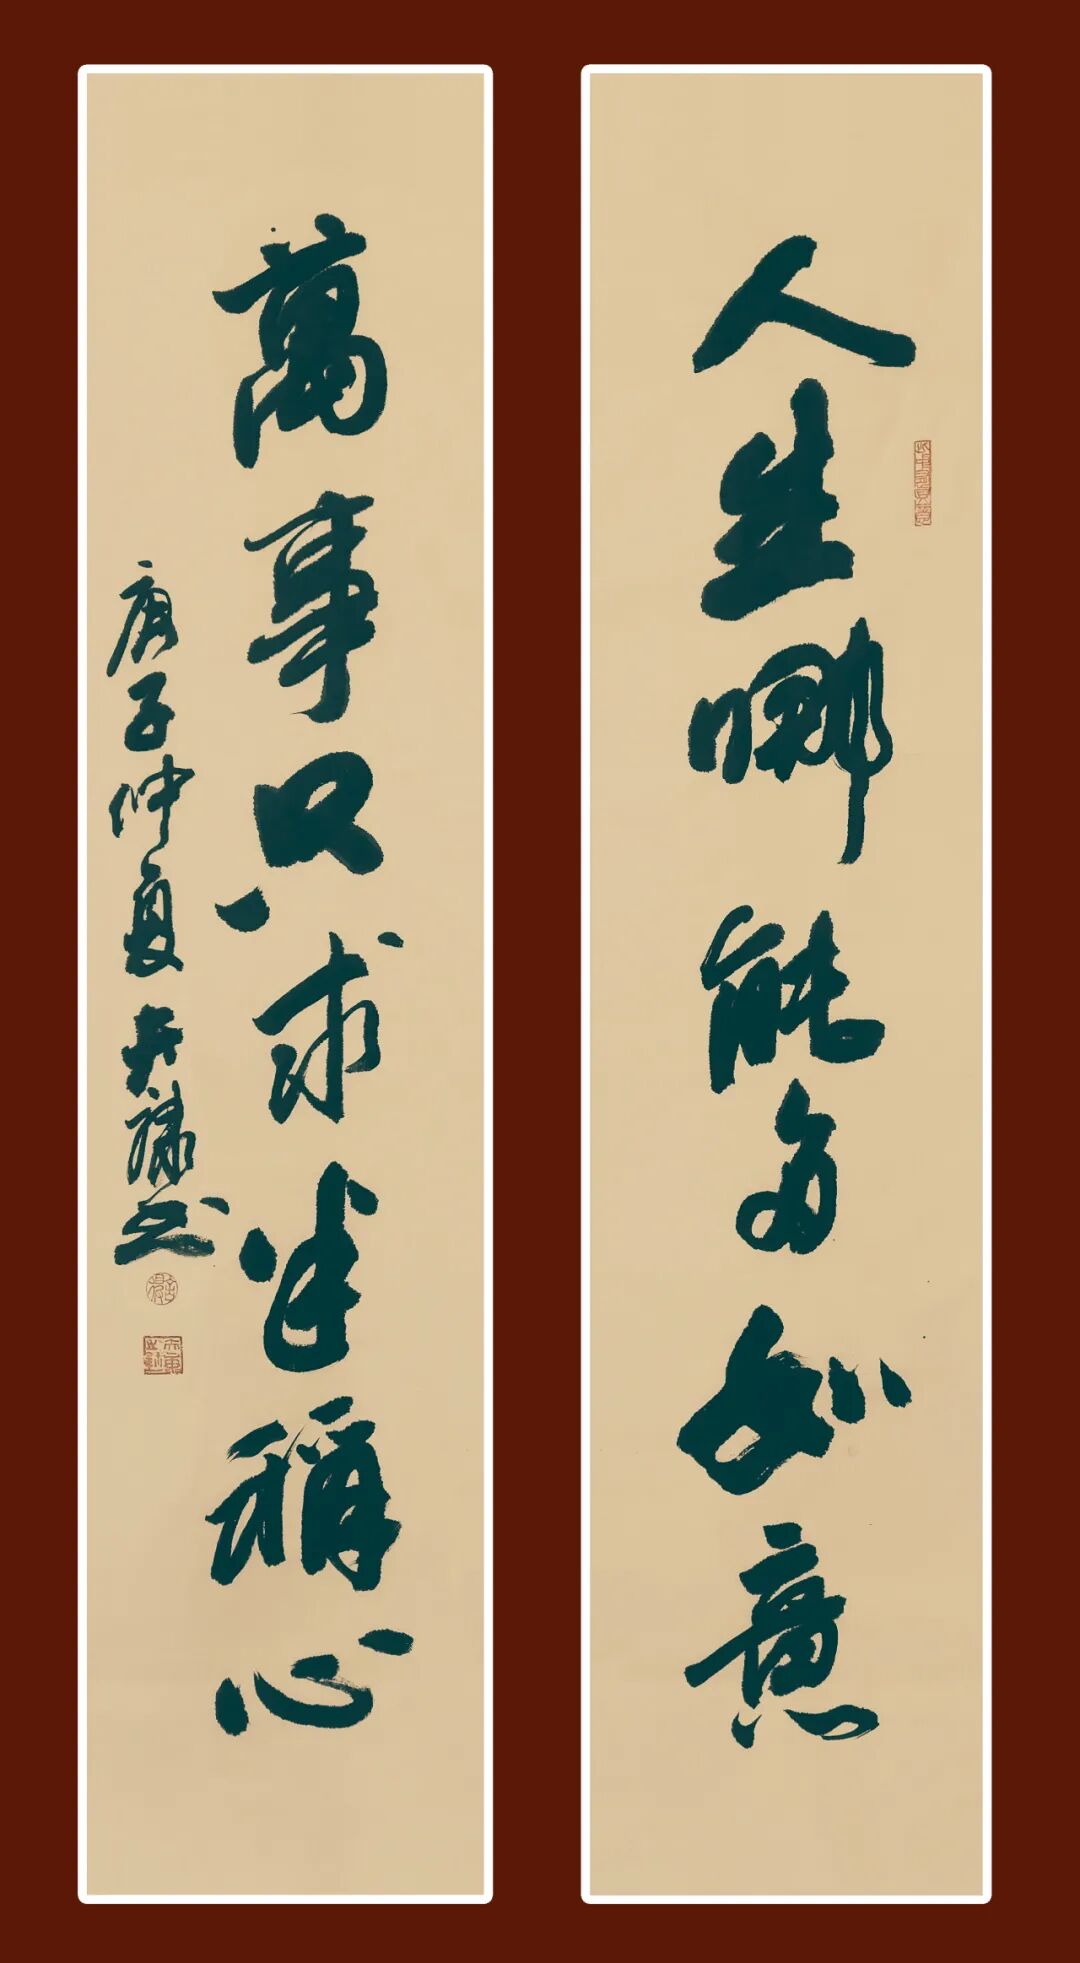 人生哪能多如意
萬事只求半稱心
庚子仲夏